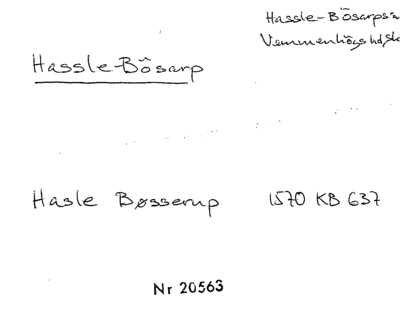 Hassle-Bösarps
Vemmenhögs hd, Sk
Hassle-Bösarp
Hasle Bøsserup 1570 KB 637
Nr 20563